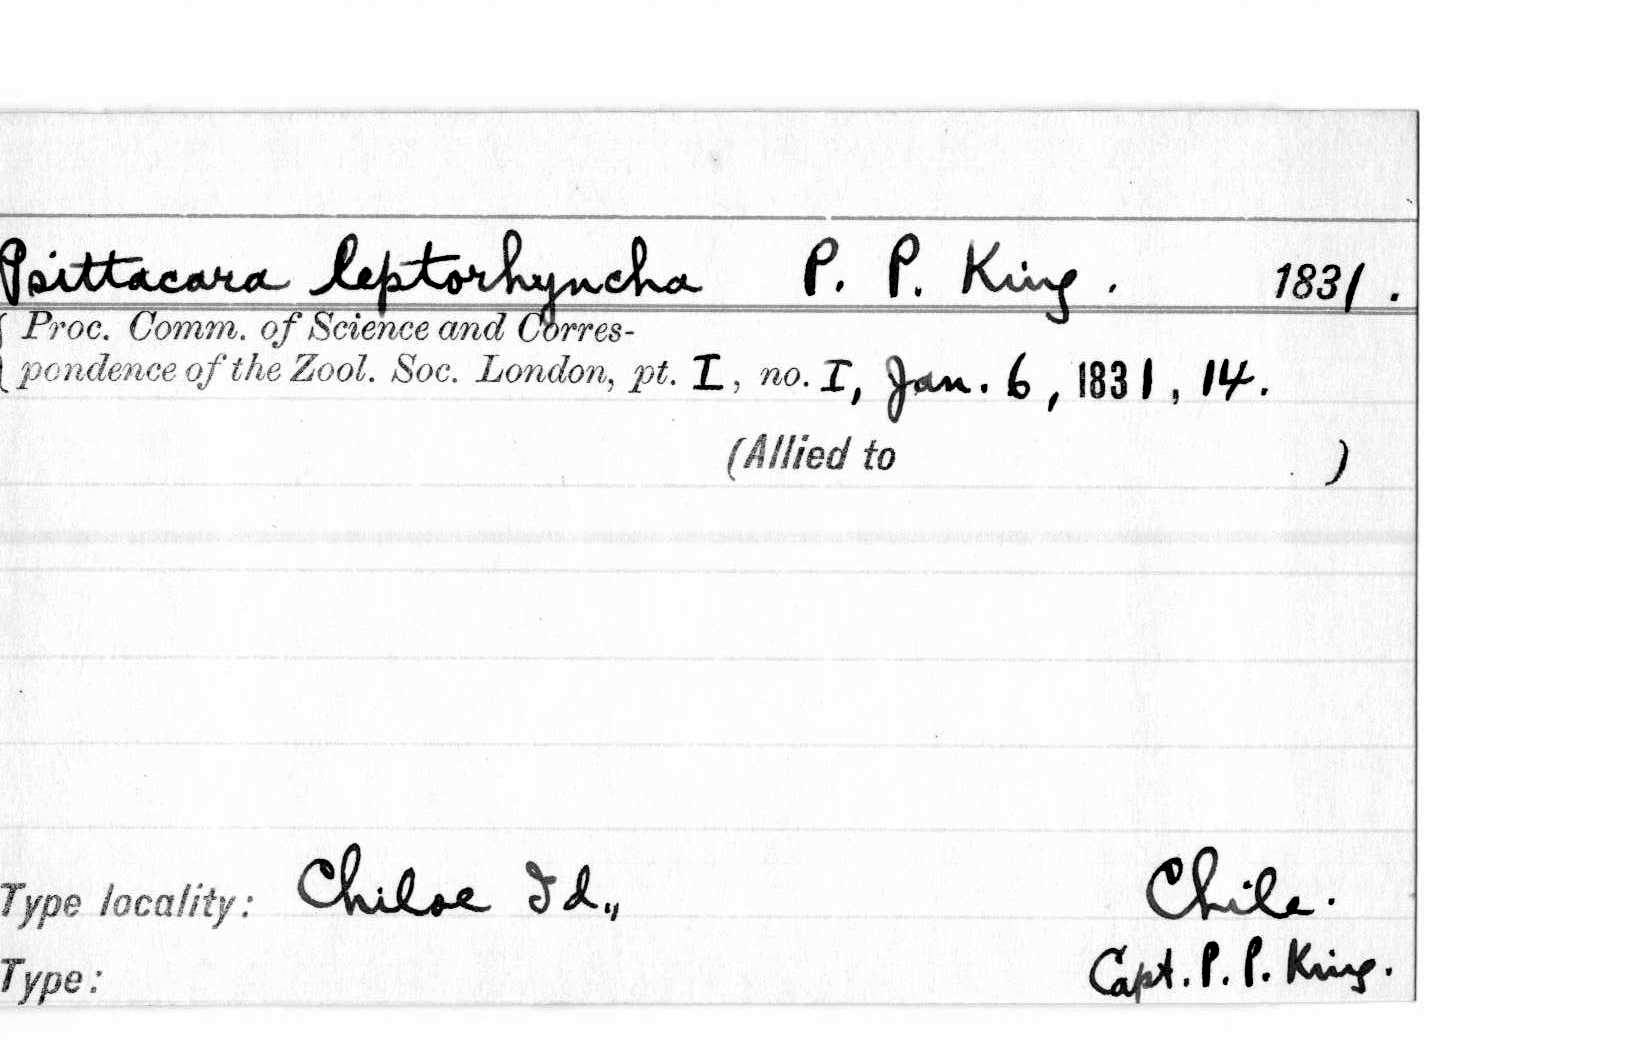 Psittacara leptorhyncha P. P. King. 1831.
{ Proc. Comm. of Science and Corres-
pondence of the Zool. Soc. London, pt. I, no. I, Jan. 6, 1831, 14.
(Allied to )
Type locality: Chiloe Id., Chile.
Type: Capt. P. P. King.